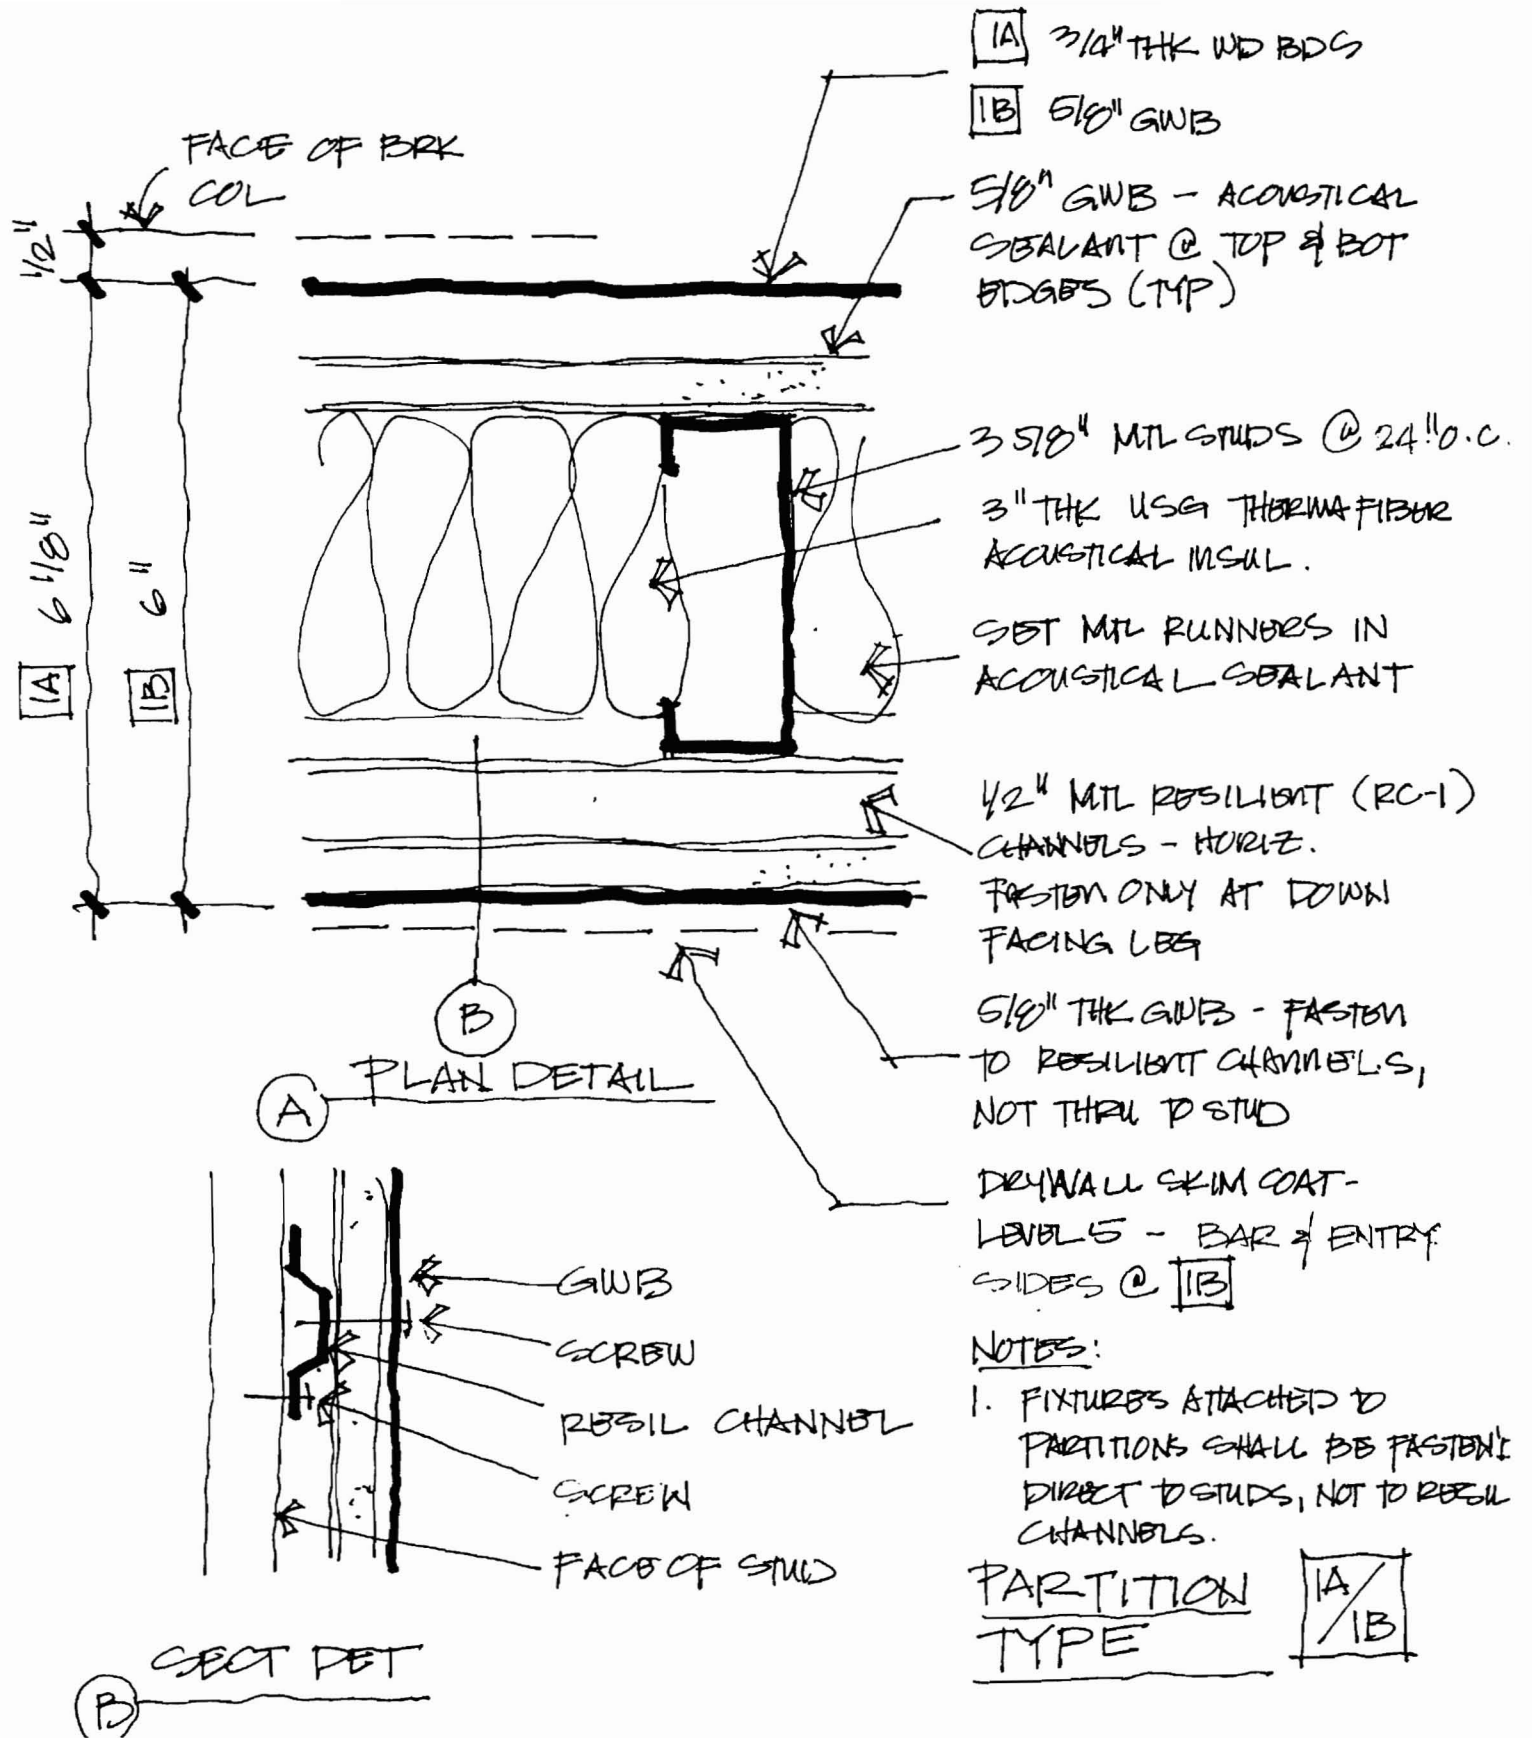 1A 3/4" THK WD BDS
1B 5/8" GWB
FACE OF BRK
COL
5/8" GWB - ACOUSTICAL
SEALANT @ TOP & BOT
EDGES (TYP)
1/2"
3 5/8" MTL STUDS @ 24" O.C.
3" THK USG THERMAFIBER
ACOUSTICAL INSUL.
6 1/8"
6"
1A
1B
SET MTL RUNNERS IN
ACOUSTICAL SEALANT
1/2" MTL RESILIENT (RC-1)
CHANNELS - HORIZ.
FASTEN ONLY AT DOWN
FACING LEG
B
5/8" THK GWB - FASTEN
TO RESILIENT CHANNELS,
NOT THRU TO STUD
A PLAN DETAIL
DRYWALL SKIM COAT-
LEVEL 5 - BAR & ENTRY
SIDES @ 1B
GWB
SCREW
RESIL CHANNEL
SCREW
FACE OF STUD
B SECT DET
NOTES:
1. FIXTURES ATTACHED TO
PARTITIONS SHALL BE FASTEN'D
DIRECT TO STUDS, NOT TO RESIL
CHANNELS.
PARTITION
TYPE
1A/1B